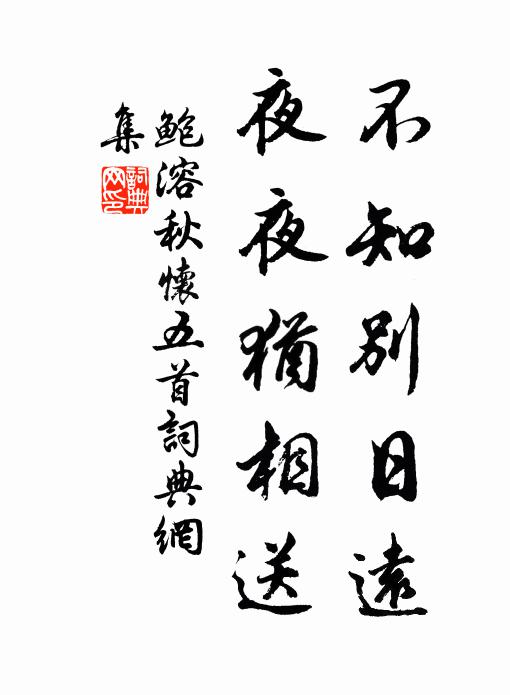 不知別日遠
夜夜猶相送
鲍溶秋懷五首詞典網
集
詞典
网印